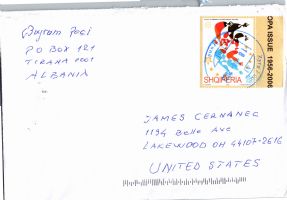 Bajram Poçi
PO BOX 121
TIRANA 1001
ALBANIA
SHQIPERIA
OPA ISSUE 1956-2006
JAMES CERNANEC
1194 Belle Ave
LAKEWOOD OH 44107-2616
UNITED STATES